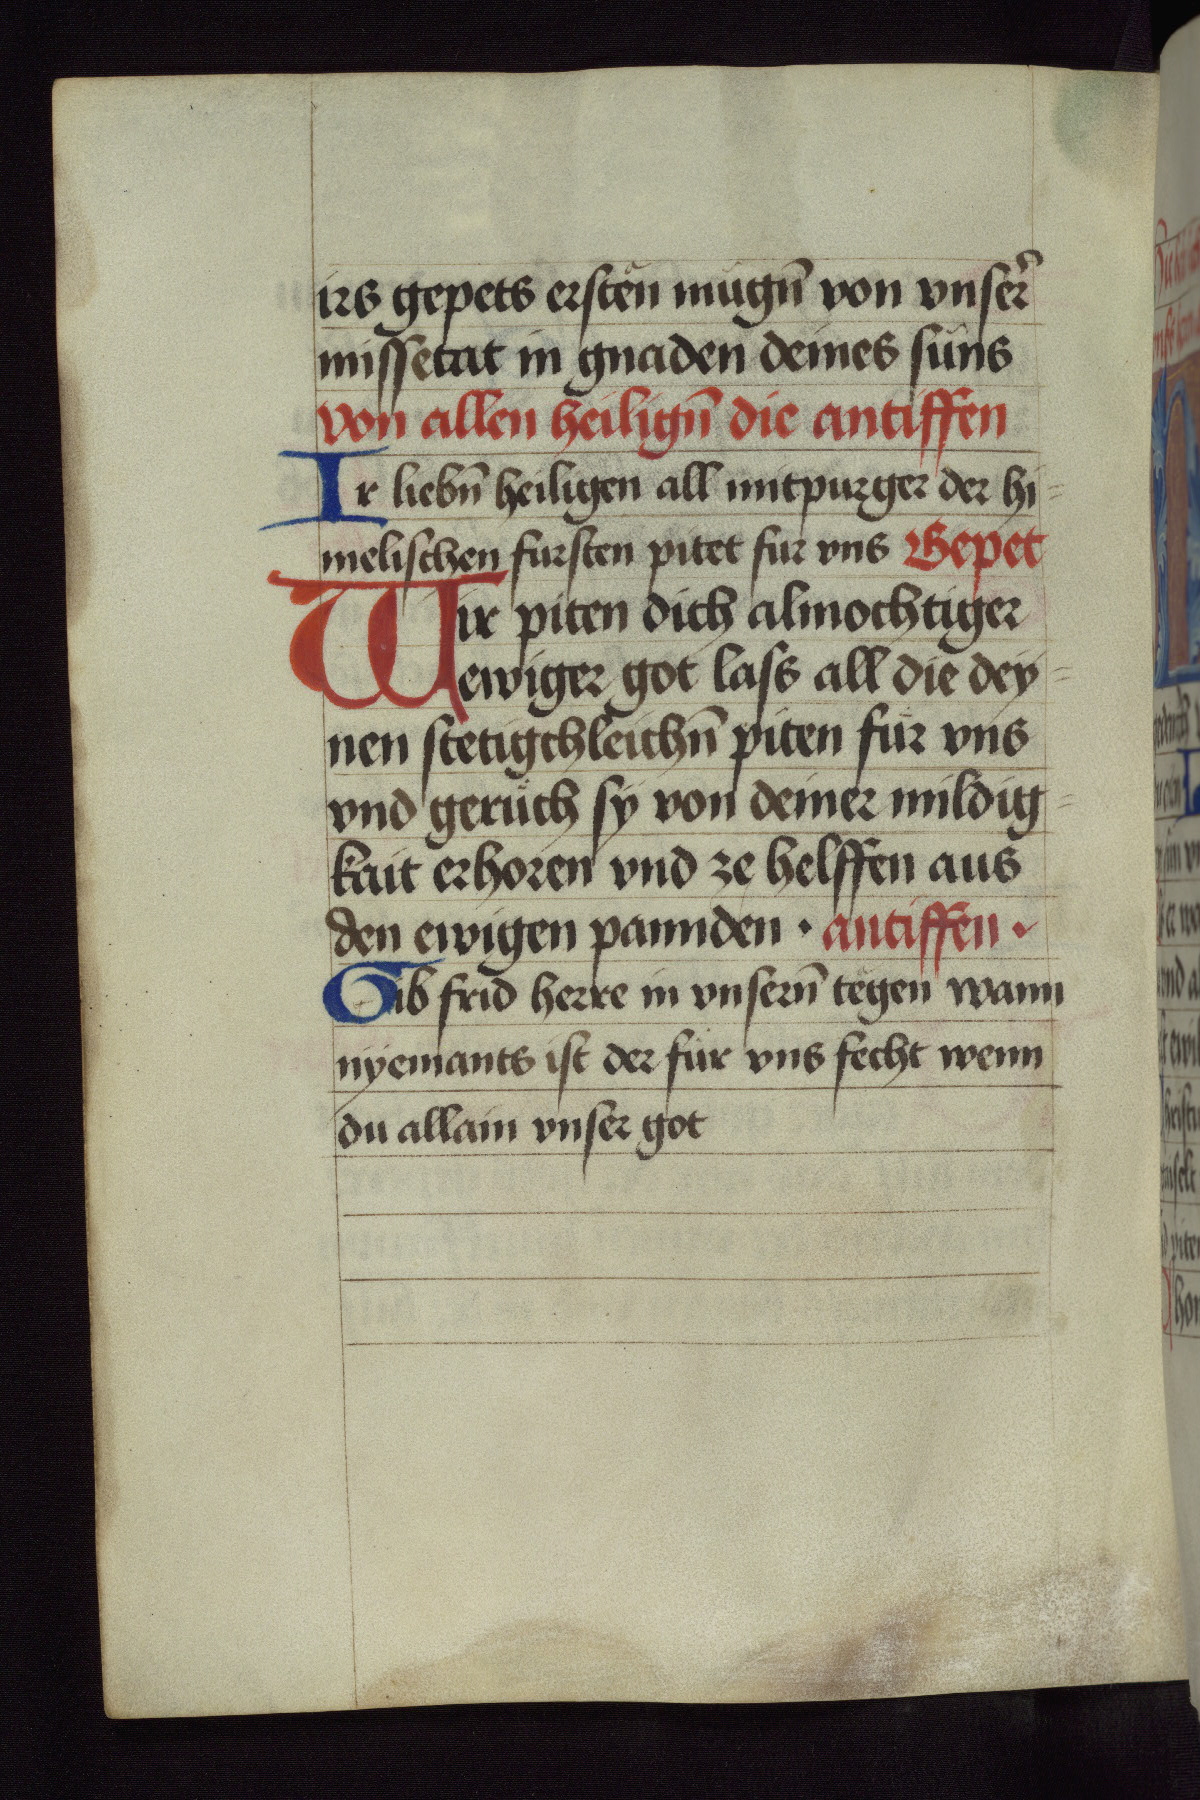 irs gepets ersten mugn̄ von vnser̄
missetat in gnaden deines suns
von allen heilign̄ die antiffen
Ir liebn̄ heiligen all mitpurger der hi=
melischen fursten pitet fur vns Gepet
Wir piten dich almochtiger
ewiger got lass all die dey=
nen stetigchleichn̄ piten für vns
vnd geruͤch sy von deiner mildig=
kait erhoren vnd ze helffen aus
den ewigen pannden · antiffen ·
Gib frid herre in vnsern̄ tegen wann
nyemants ist der für vns fecht wenn
du allain vnser got